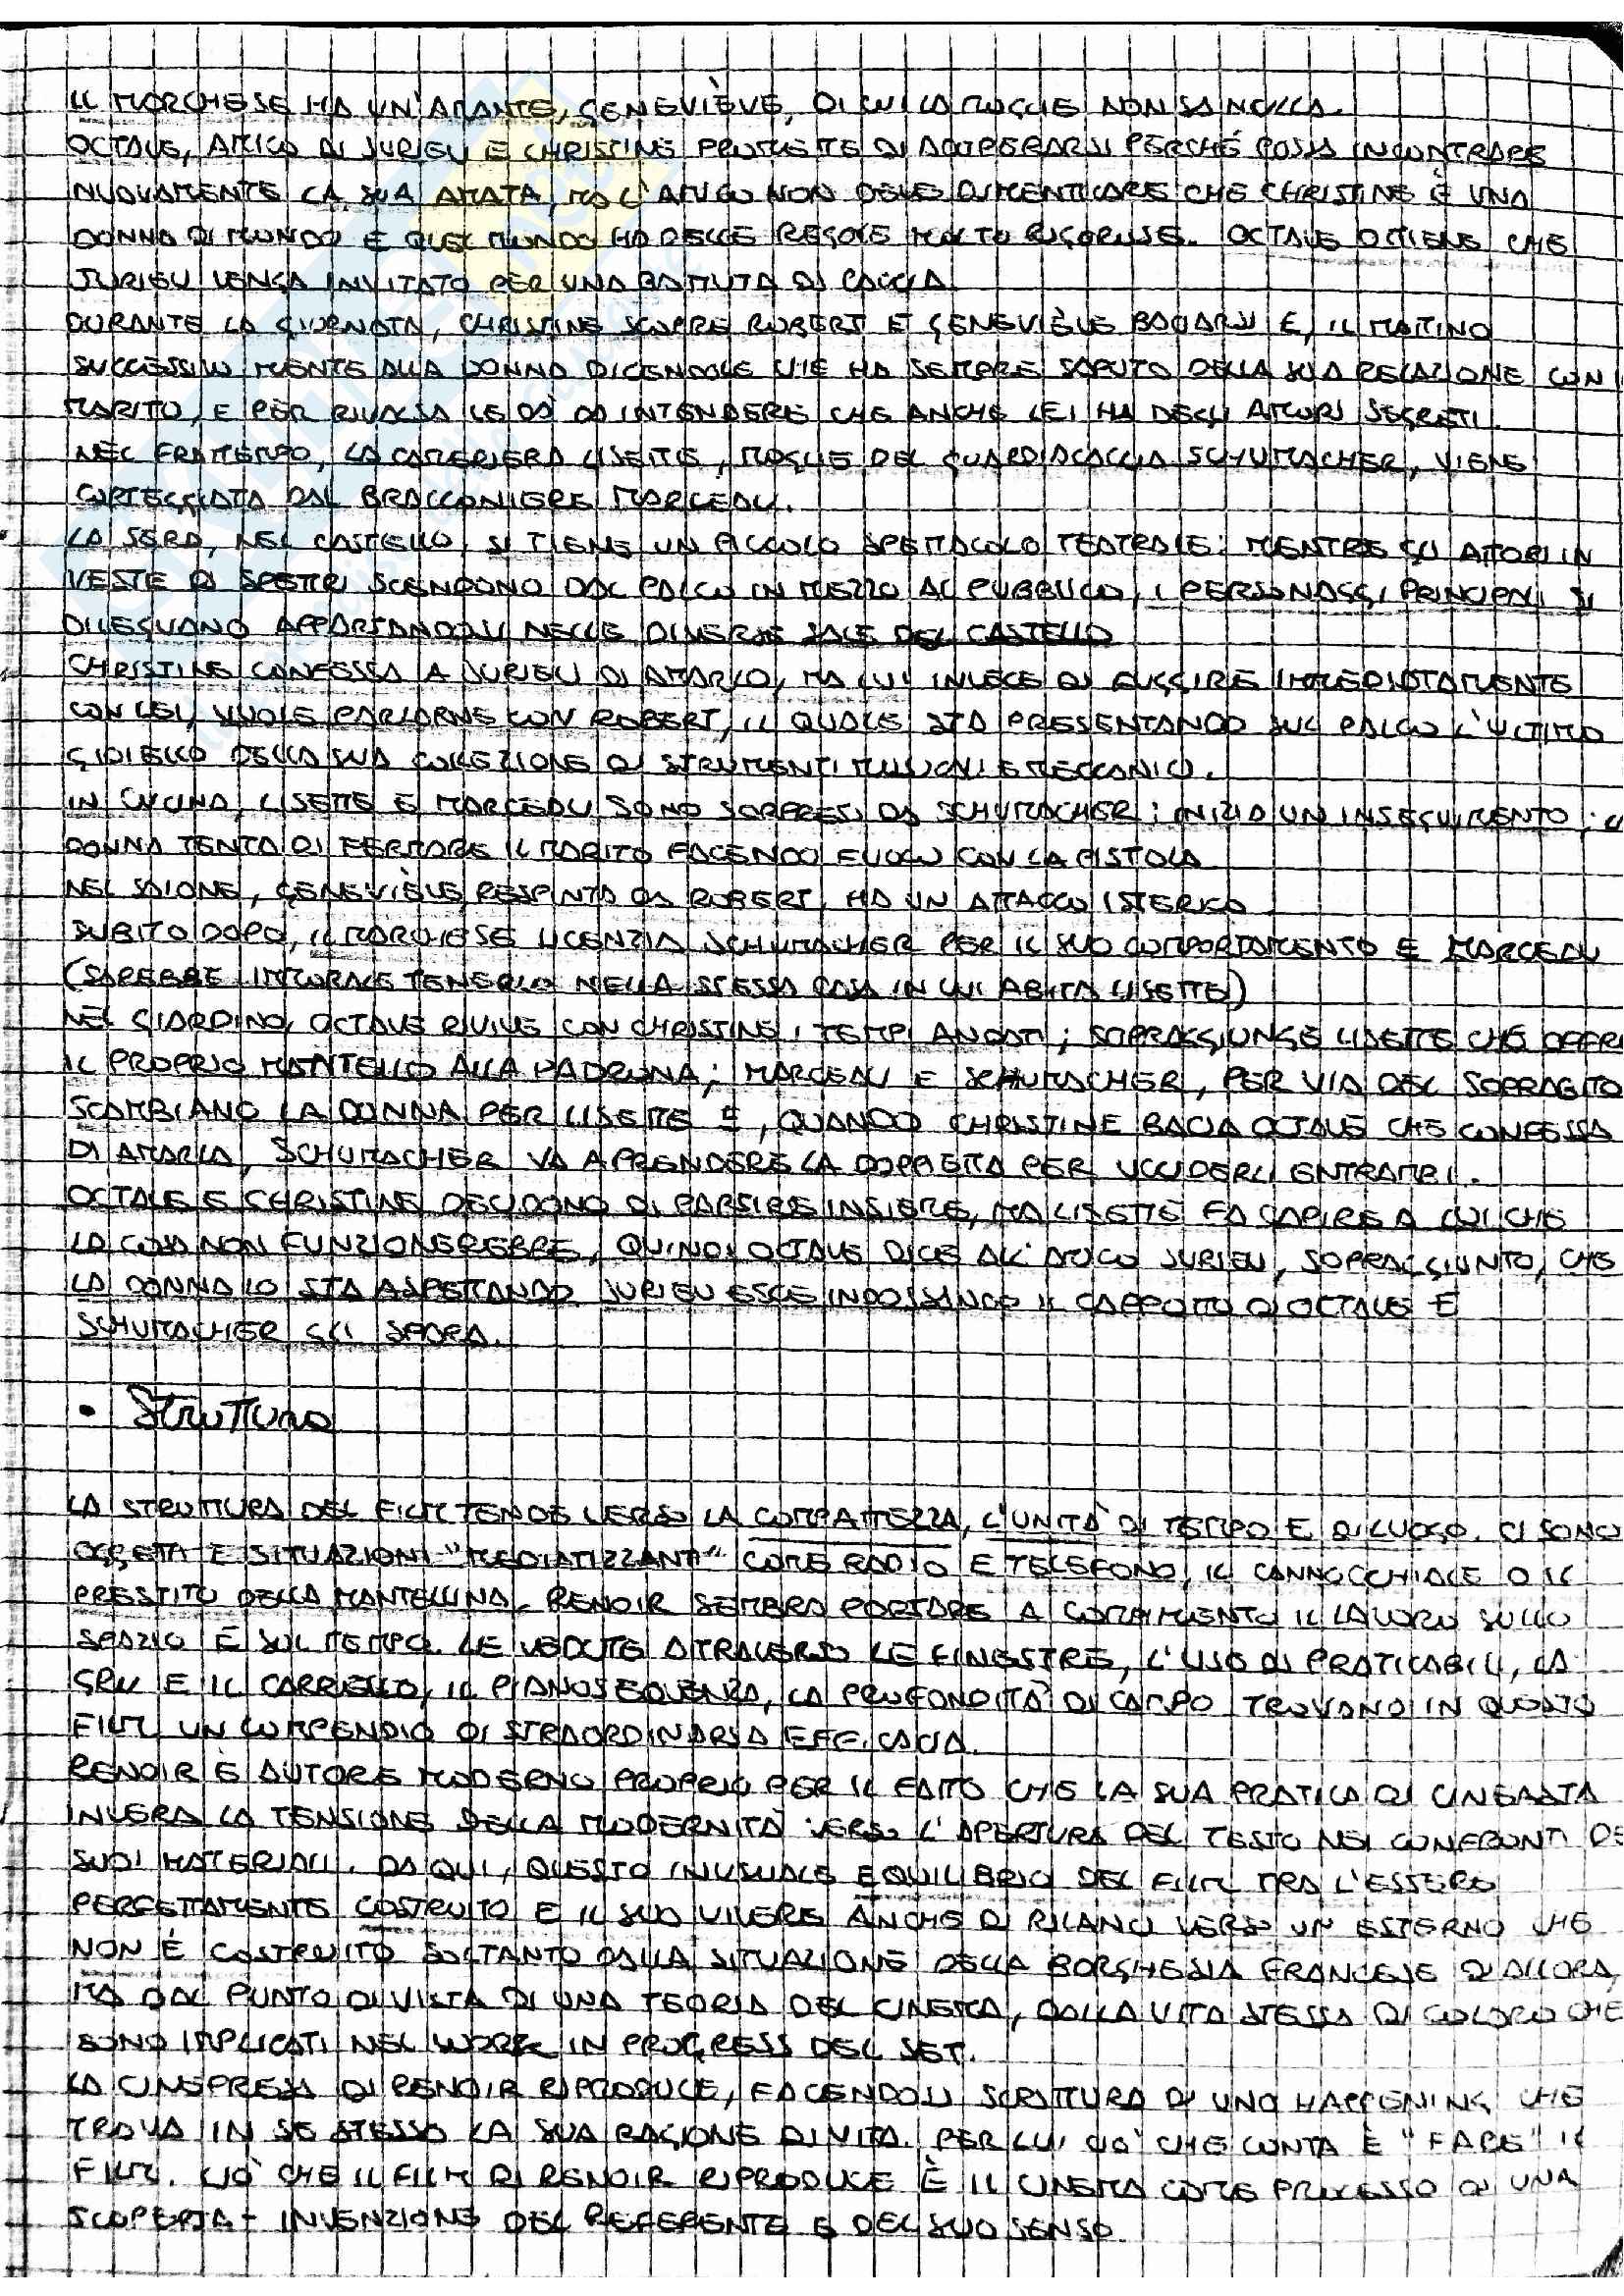 IL MARCHESE HA UN'AMANTE, GENEVIÈVE, DI CUI LA MOGLIE NON SA NULLA.
OCTAVE, AMICO DI JURIEU E CHRISTINE PROMETTE DI ADOPERARSI PERCHÉ POSSA INCONTRARE
NUOVAMENTE LA SUA AMATA, MA L'AMICO NON DEVE DIMENTICARE CHE CHRISTINE È UNA
DONNA DI MONDO E QUEL MONDO HA DELLE REGOLE MOLTO RIGOROSE. OCTAVE OTTIENE CHE
JURIEU VENGA INVITATO PER UNA BATTUTA DI CACCIA.
DURANTE LA GIORNATA, CHRISTINE SCOPRE ROBERT E GENEVIÈVE BACIARSI E, IL MATTINO
SUCCESSIVO MENTE ALLA DONNA DICENDOLE CHE HA SEMPRE SAPUTO DELLA SUA RELAZIONE CON I
MARITO, E PER RIVALSA LE DÀ DA INTENDERE CHE ANCHE LEI HA DEGLI AMORI SEGRETI.
NEL FRATTEMPO, LA CAMERIERA LISETTE, MOGLIE DEL GUARDIACACCIA SCHUMACHER, VIENE
CORTEGGIATA DAL BRACCONIERE MARCEAU.
LA SERA, NEL CASTELLO, SI TIENE UN PICCOLO SPETTACOLO TEATRALE: MENTRE GLI ATTORI IN
VESTE DI SPETTRI SCENDONO DAL PALCO IN MEZZO AL PUBBLICO, I PERSONAGGI PRINCIPALI SI
DILEGUANO APPARTANDOSI NELLE DIVERSE SALE DEL CASTELLO
CHRISTINE CONFESSA A JURIEU DI AMARLO, MA LUI INVECE DI FUGGIRE IMMEDIATAMENTE
CON LEI, VUOLE PARLARNE CON ROBERT, IL QUALE STA PRESENTANDO SUL PALCO L'ULTIMO
GIOIELLO DELLA SUA COLLEZIONE DI STRUMENTI MUSICALI E MECCANICI.
IN CUCINA, LISETTE E MARCEAU SONO SORPRESI DA SCHUMACHER; INIZIA UN INSEGUIMENTO;
DONNA TENTA DI FERMARE IL MARITO FACENDO FUOCO CON LA PISTOLA
NEL SALONE, GENEVIÈVE, RESPINTA DA ROBERT, HA UN ATTACCO ISTERICO
SUBITO DOPO, IL MARCHESE LICENZIA SCHUMACHER PER IL SUO COMPORTAMENTO E MARCEAU
(SAREBBE IMMORALE TENERLO NELLA STESSA CASA IN CUI ABITA LISETTE)
NEL GIARDINO, OCTAVE RIVIVE CON CHRISTINE I TEMPI ANDATI; SOPRAGGIUNGE LISETTE CHE OFFRE
IL PROPRIO MANTELLO ALLA PADRONA; MARCEAU E SCHUMACHER, PER VIA DEL SOPRABITO
SCAMBIANO LA DONNA PER LISETTE E, QUANDO CHRISTINE BACIA OCTAVE CHE CONFESSA
DI AMARLA, SCHUMACHER VA A PRENDERE LA DOPPIETTA PER UCCIDERLI ENTRAMBI.
OCTAVE E CHRISTINE DECIDONO DI PARTIRE INSIEME, MA LISETTE FA CAPIRE A LUI CHE
LA COSA NON FUNZIONEREBBE, QUINDI OCTAVE DICE ALL'AMICO JURIEU, SOPRAGGIUNTO, CHE
LA DONNA LO STA ASPETTANDO. JURIEU ESCE INDOSSANDO IL CAPPOTTO DI OCTAVE E
SCHUMACHER GLI SPARA.
• STRUTTURA
LA STRUTTURA DEL FILM TENDE VERSO LA COMPATTEZZA, L'UNITÀ DI TEMPO E DI LUOGO. CI SONO
OGGETTI E SITUAZIONI "MEDIATIZZANTI" COME RADIO E TELEFONO, IL CANNOCCHIALE O IL
PRESTITO DELLA MANTELLINA. RENOIR SEMBRA PORTARE A COMPIMENTO IL LAVORO SULLO
SPAZIO E SUL TEMPO. LE VEDUTE ATTRAVERSO LE FINESTRE, L'USO DI PRATICABILI, LA
GRU E IL CARRELLO, IL PIANOSEQUENZA, LA PROFONDITÀ DI CAMPO TROVANO IN QUESTO
FILM UN COMPENDIO DI STRAORDINARIA EFFICACIA.
RENOIR È AUTORE MODERNO PROPRIO PER IL FATTO CHE LA SUA PRATICA DI CINEASTA
INVERA LA TENSIONE DELLA MODERNITÀ VERSO L'APERTURA DEL TESTO NEI CONFRONTI DE
SUOI MATERIALI. DA QUI, QUESTO INUSUALE EQUILIBRIO DEL FILM TRA L'ESSERE
PERFETTAMENTE COSTRUITO E IL SUO VIVERE ANCHE DI RILANCI VERSO UN ESTERNO CHE
NON È COSTRUITO SOLTANTO DALLA SITUAZIONE DELLA BORGHESIA FRANCESE D'ALLORA,
MA DAL PUNTO DI VISTA DI UNA TEORIA DEL CINEMA, DALLA VITA STESSA DI COLORO CHE
SONO IMPLICATI NEL WORK IN PROGRESS DEL SET.
LA CINEPRESA DI RENOIR RIPRODUCE, FACENDOSI SCRITTURA DI UNO HAPPENING CHE
TROVA IN SE STESSO LA SUA RAGIONE DI VITA. PER LUI CIÒ CHE CONTA È "FARE" IL
FILM. CIÒ CHE IL FILM DI RENOIR RIPRODUCE È IL CINEMA COME PROCESSO DI UNA
SCOPERTA - INVENZIONE DEL REFERENTE E DEL SUO SENSO.